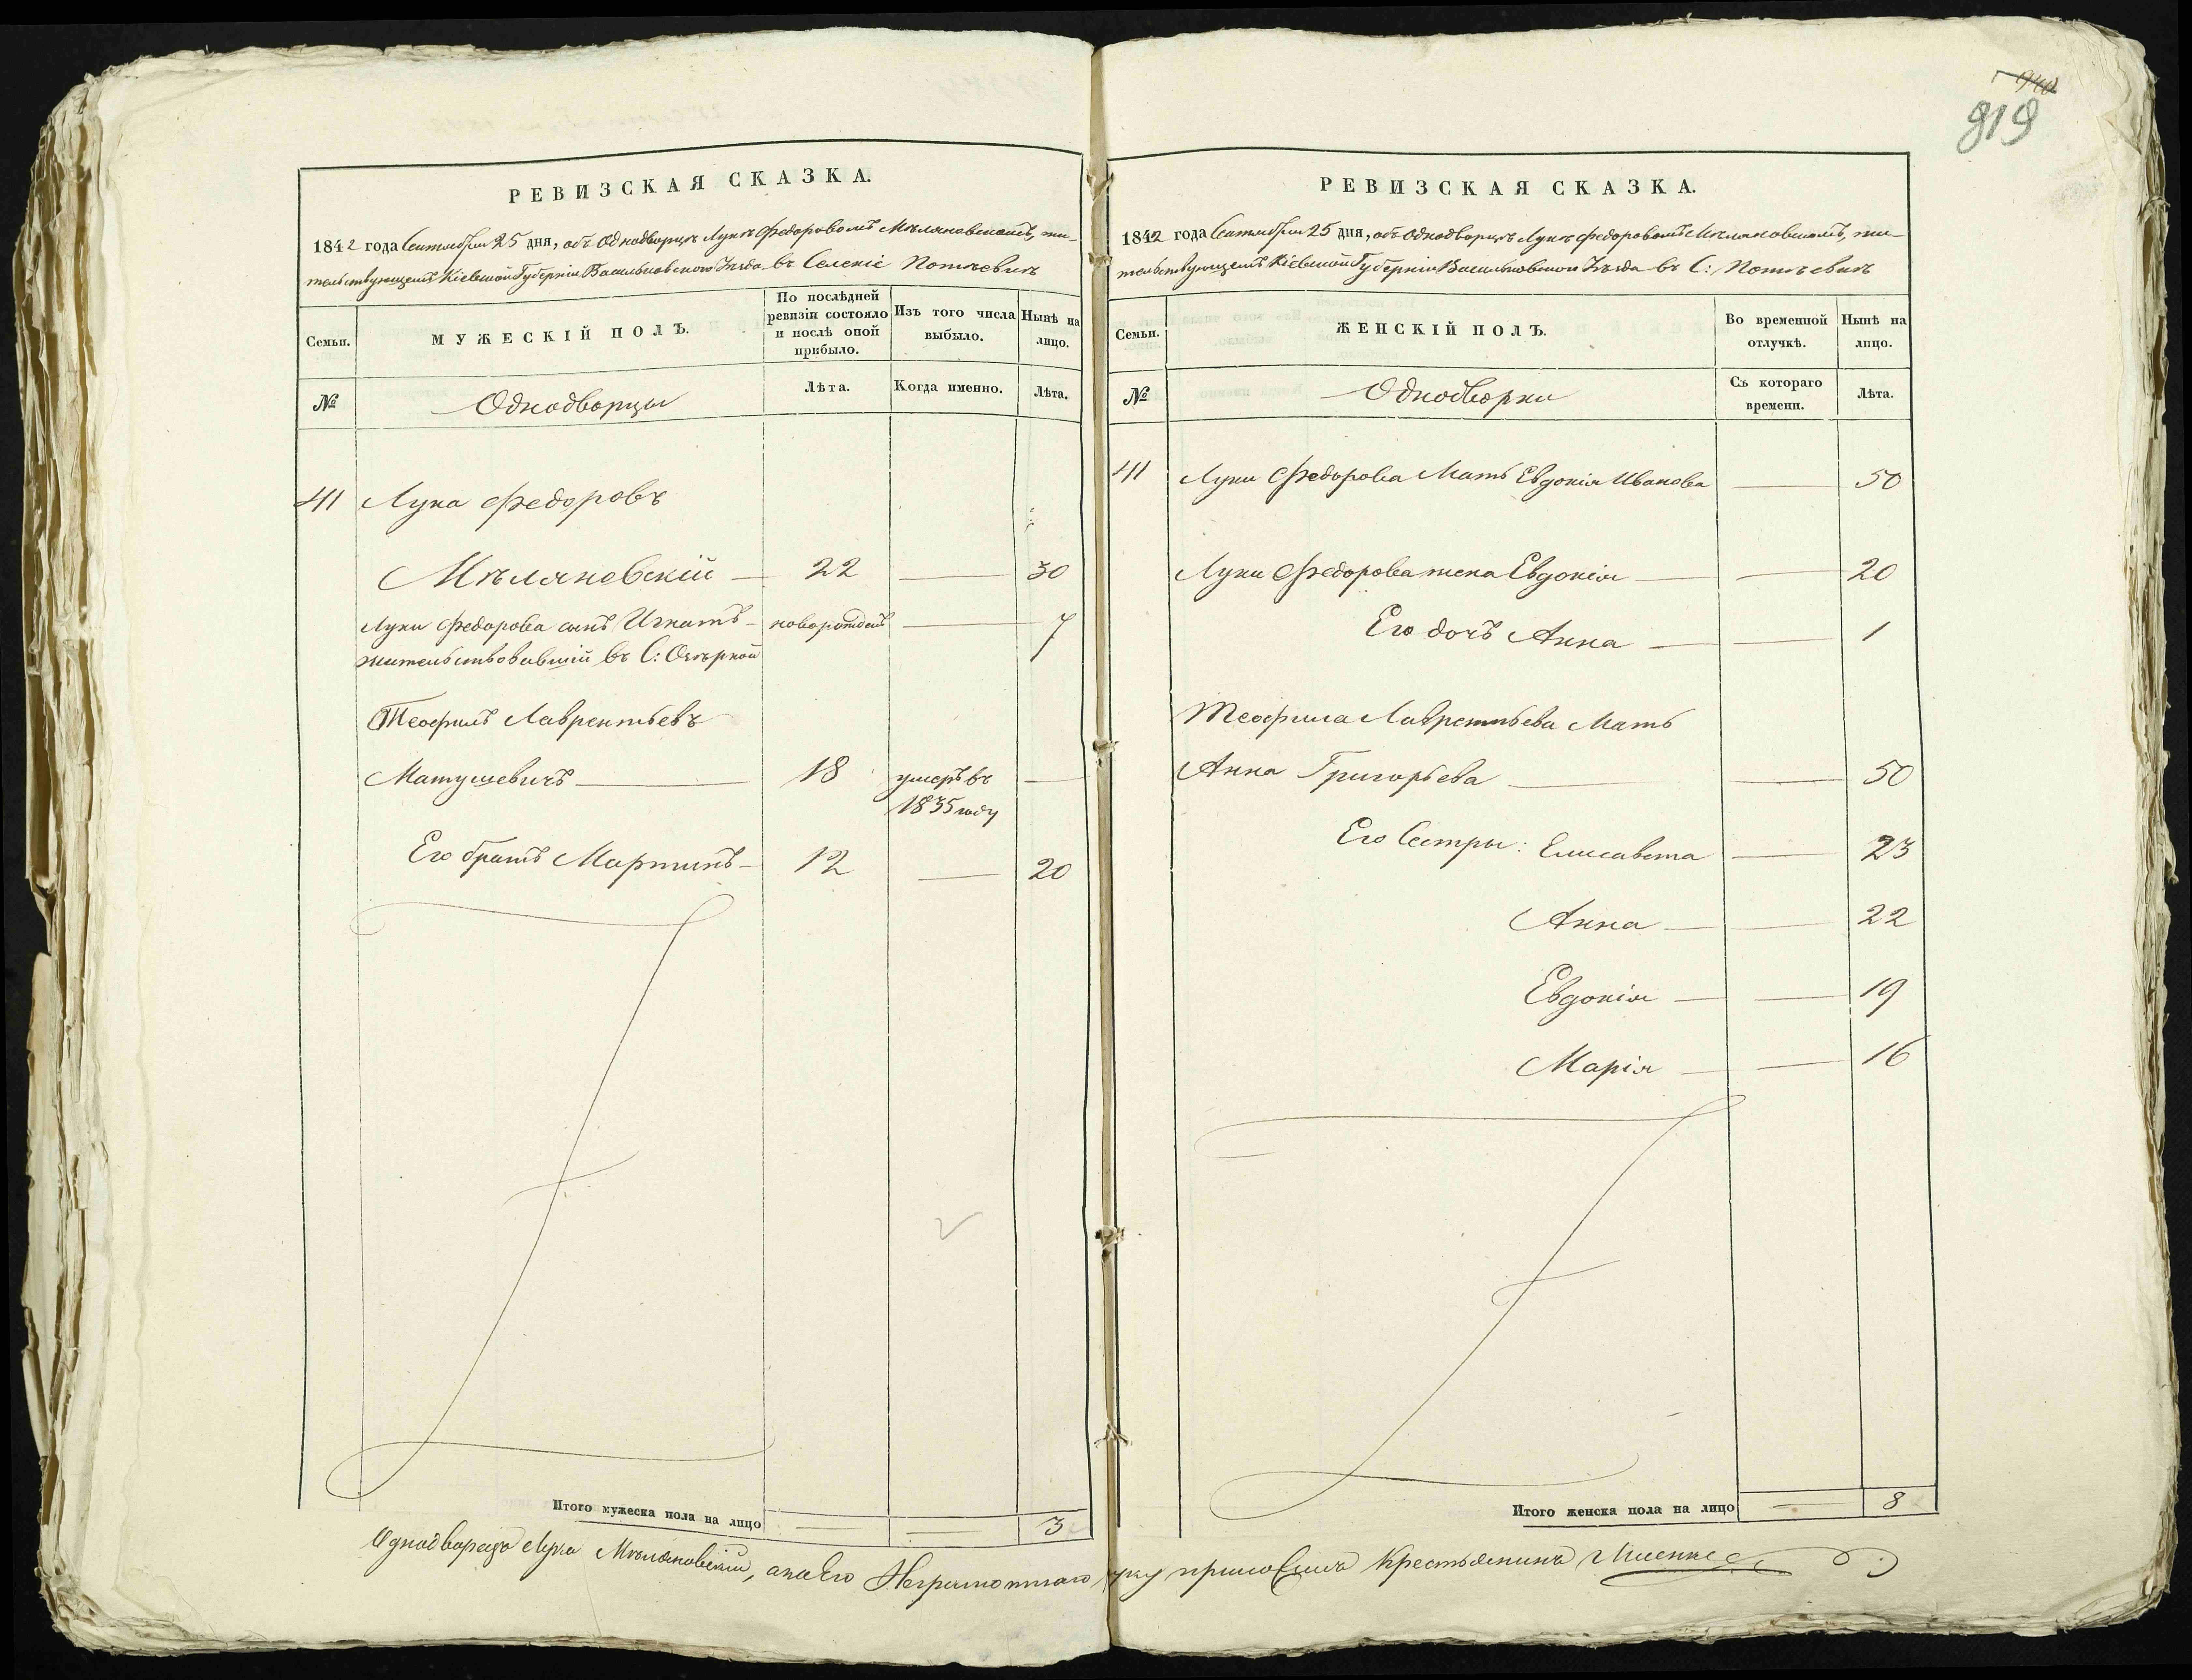 940
819
РЕВИЗСКАЯ СКАЗКА.
1842 года Сентября 25 дня, объ Однодворцѣ Лукѣ Федоровомъ Мѣляновскомъ, жи-
тельствующемъ Кіевской Губерніи Васильковскаго Уѣзда въ Селеніе Потіевкѣ
Семьи.
МУЖЕСКІЙ ПОЛЪ.
По послѣдней ревизіи состояло и послѣ оной прибыло.
Изъ того числа выбыло.
Нынѣ на лицо.
№
Однодворцы
Лѣта.
Когда именно.
Лѣта.
41 Лука Федоровъ
Мѣляновскій — 22 — 30
Луки Федорова сынъ Игнатъ — новорожден — 7
жительствовавшій въ С: Озѣрной
Теофилъ Лаврентьевъ
Матушевичъ — 18 умеръ въ —
1835 году
Его братъ Мартинъ — 12 — 20
Итого мужеска пола на лицо — — 3
РЕВИЗСКАЯ СКАЗКА.
1842 года Сентября 25 дня, объ Однодворцѣ Лукѣ Федоровомъ Мѣляновскомъ, жи-
тельствующемъ Кіевской Губерніи Васильковскаго Уѣзда въ С:
Семьи.
ЖЕНСКІЙ ПОЛЪ.
Во временной отлучкѣ.
Нынѣ на лицо.
№
Однодворки
Съ котораго времени.
Лѣта.
41 Луки Федорова Мать Евдокія Иванова — 50
Луки Федорова жена Евдокія — — 20
Его дочь Анна — — 1
Теофила Лаврентьева Мать
Анна Григорьева — — 50
Его Сестры: Елисавета — 23
Анна — — 22
Евдокія — — 19
Марія — — 16
Итого женска пола на лицо — 8
Однодворецъ Лука Мѣляновскій, а за Его Неграмотнаго руку приложилъ Крестьянинъ